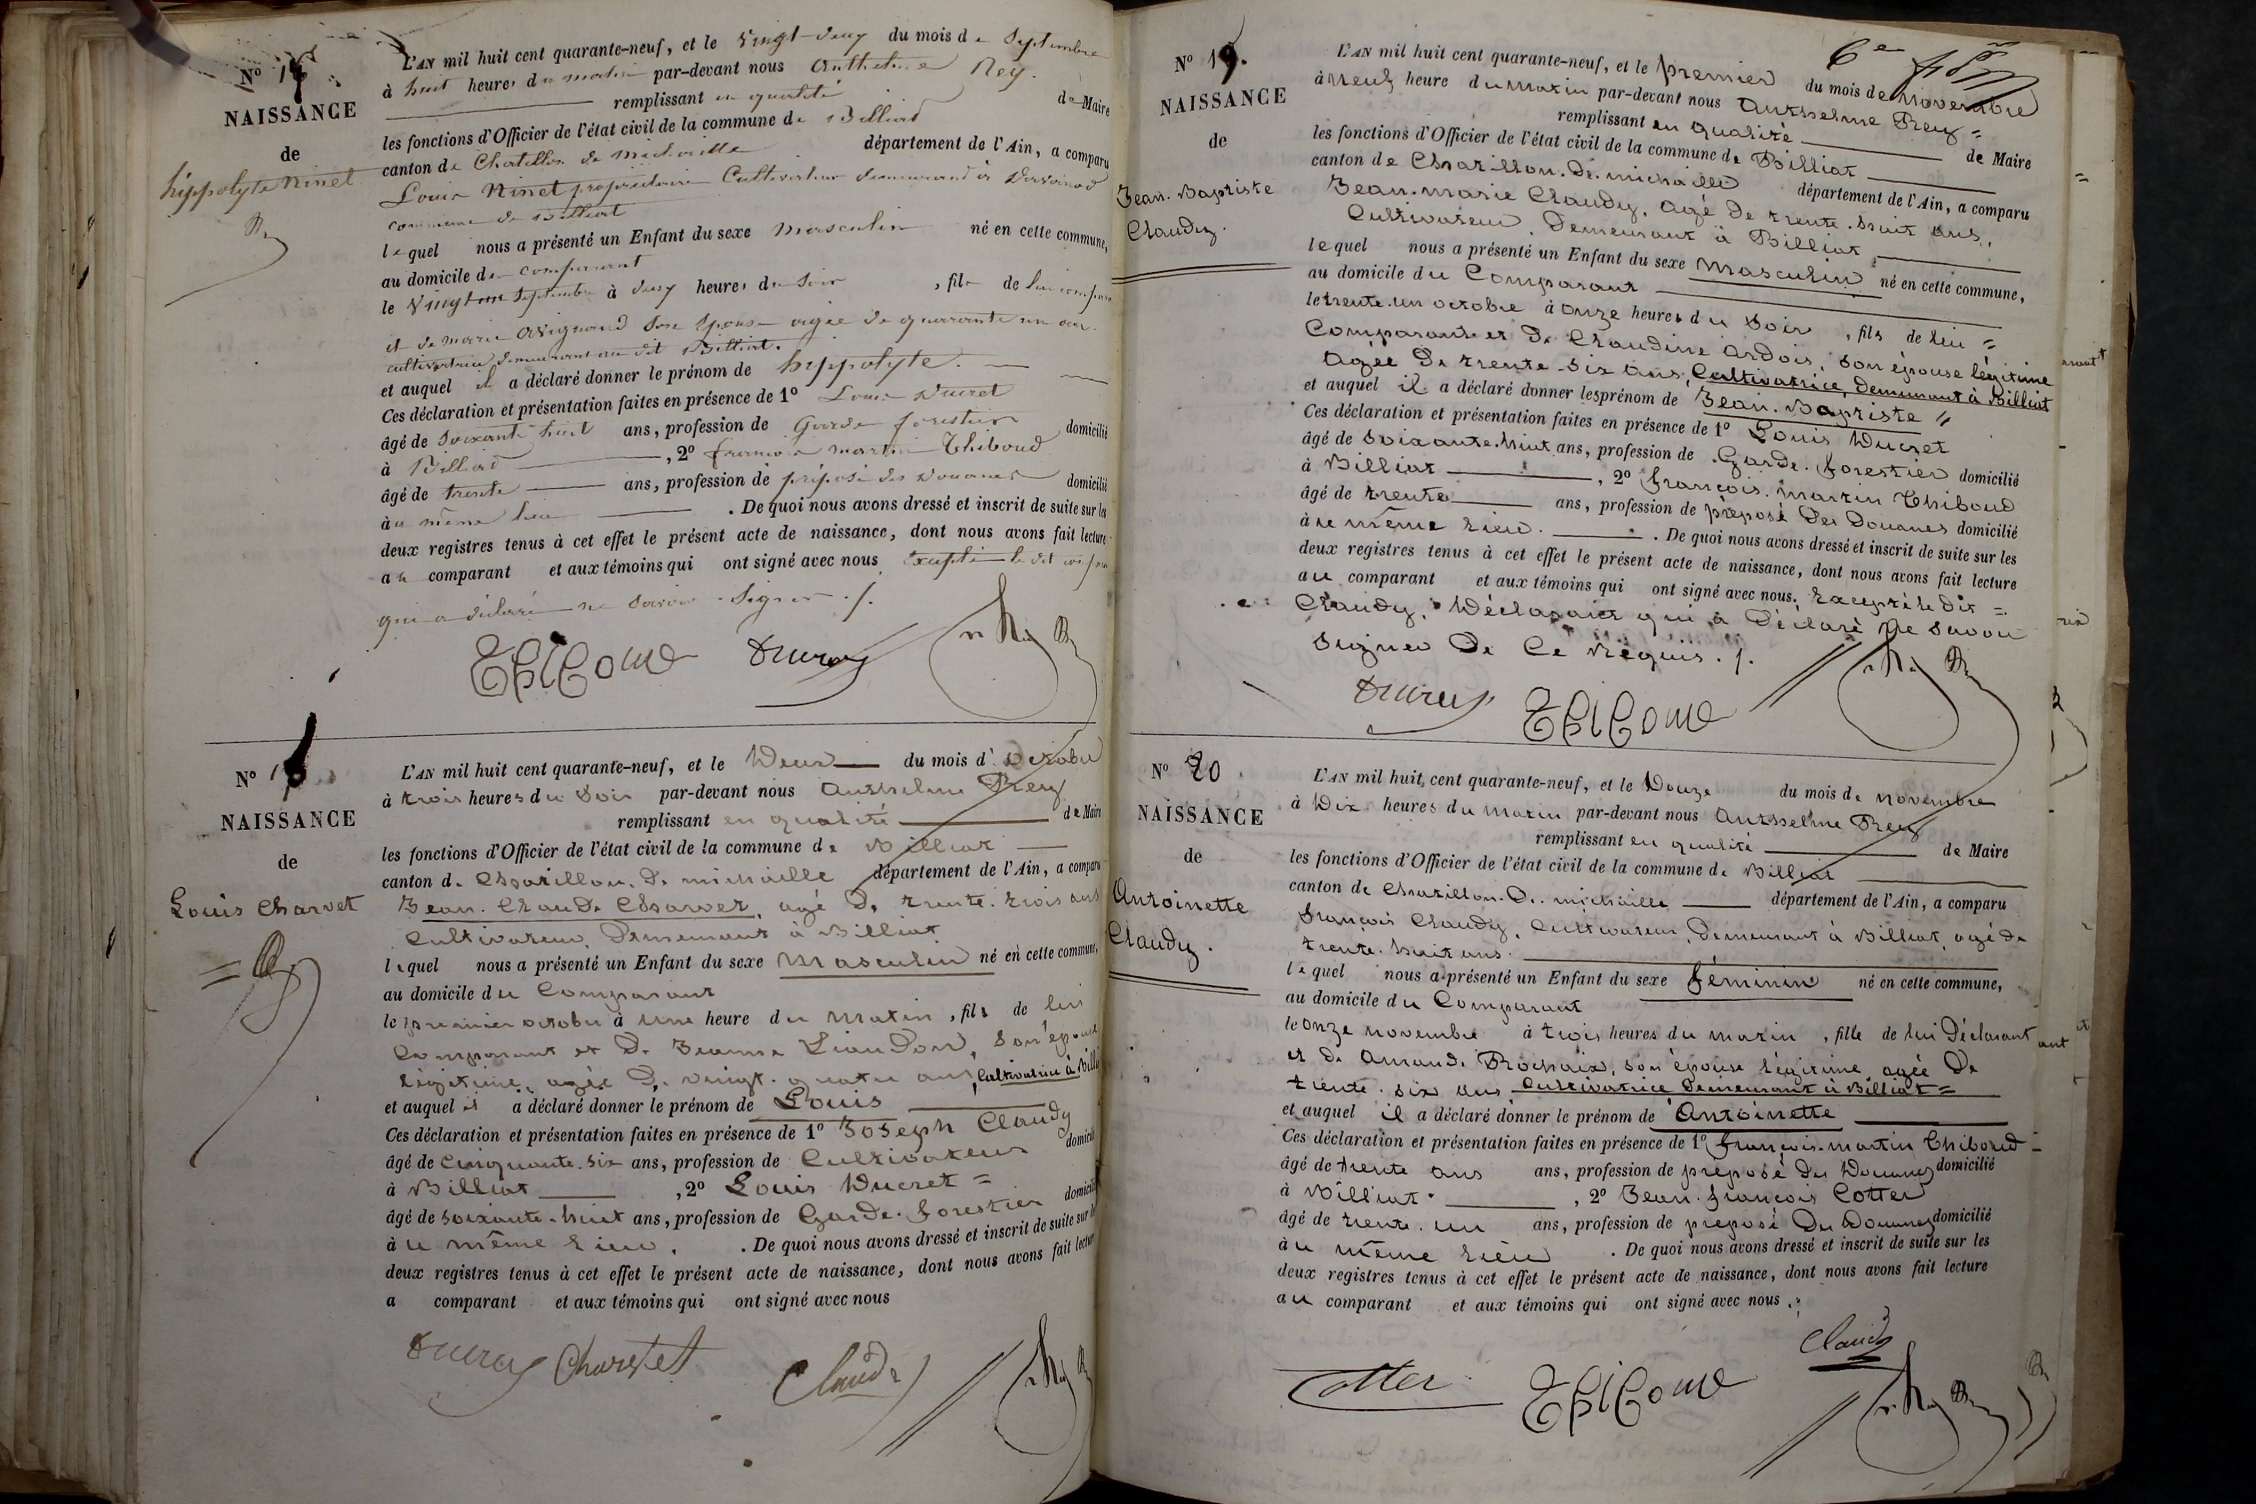 N° 1
NAISSANCE
de
hippolyte Ninet
L'AN mil huit cent quarante-neuf, et le vingt-deux du mois de Septembre
à huit heures du matin par-devant nous Anthelme Rey.
remplissant en qualité de Maire
les fonctions d'Officier de l'état civil de la commune de Billiat
canton de Chatillon de michaille département de l'Ain, a comparu
Louis Ninet propriétaire Cultivateur demeurant à
commune de Billiat
lequel nous a présenté un Enfant du sexe masculin né en cette commune,
au domicile du comparant
le vingt un Septembre à deux heures du Soir , fils de lui comparant
et de marie Avignand Son Epouse agée de quarante un ans
cultivatrice demeurant au dit Billiat.
et auquel il a déclaré donner le prénom de hyppolyte.
Ces déclaration et présentation faites en présence de 1° Louis Ducret
âgé de soixante huit ans, profession de Garde forestier domicilié
à Billiat , 2° francois martin Thiboud
âgé de trente ans, profession de préposé des Douanes domicilié
au même lieu . De quoi nous avons dressé et inscrit de suite sur les
deux registres tenus à cet effet le présent acte de naissance, dont nous avons fait lecture
au comparant et aux témoins qui ont signé avec nous excepté le dit
qui a déclaré ne savoir signer ./.
Thiboud Ducret
N° 1
NAISSANCE
de
Louis Charvet
L'AN mil huit cent quarante-neuf, et le Deux du mois d'Octobre
à trois heures du Soir par-devant nous Anthelme Rey
remplissant en qualité de Maire
les fonctions d'Officier de l'état civil de la commune de Billiat
canton de Chatillon. De michaille département de l'Ain, a comparu
Jean. Claude Charvet, agé De trente. trois ans
Cultivateur, Demeurant à Billiat
lequel nous a présenté un Enfant du sexe masculin né en cette commune,
au domicile du Comparant
le premier octobre à une heure du matin , fils de lui
Comparant et De Jeanne Liaudon, Son épouse
légitime, agée De vingt. quatre ans, Cultivatrice à Billiat
et auquel il a déclaré donner le prénom de Louis
Ces déclaration et présentation faites en présence de 1° Joseph Claudy
âgé de Cinquante. six ans, profession de Cultivateur domicilié
à Billiat , 2° Louis Ducret =
âgé de soixante. huit ans, profession de Garde. forestier domicilié
au même lieu . De quoi nous avons dressé et inscrit de suite sur les
deux registres tenus à cet effet le présent acte de naissance, dont nous avons fait lecture
a comparant et aux témoins qui ont signé avec nous
Ducret Charvet Claudy
N° 19.
NAISSANCE
de
Jean. Baptiste
Claudy.
6e
L'AN mil huit cent quarante-neuf, et le premier du mois de Novembre
à neuf heure du matin par-devant nous Anthelme Rey =
remplissant en qualité de Maire
les fonctions d'Officier de l'état civil de la commune de Billiat
canton de Chatillon. De. michaille département de l'Ain, a comparu
Jean. marie Claudy. agé De trente. huit ans,
Cultivateur, Demeurant à Billiat
lequel nous a présenté un Enfant du sexe masculin né en cette commune,
au domicile du Comparant
le trente. un octobre à onze heures du Soir , fils de lui =
Comparant et De Claudine Ardois, Son épouse légitime
agée De trente. Six ans, Cultivatrice, Demeurant à Billiat
et auquel il a déclaré donner les prénom de Jean. Baptiste "
Ces déclaration et présentation faites en présence de 1° Louis Ducret
âgé de soixante. huit ans, profession de Garde. forestier domicilié
à Billiat , 2° françois. martin Thiboud
âgé de trente ans, profession de préposé Des Douanes domicilié
au même lieu. . De quoi nous avons dressé et inscrit de suite sur les
deux registres tenus à cet effet le présent acte de naissance, dont nous avons fait lecture
au comparant et aux témoins qui ont signé avec nous. Excepté le dit =
Claudy. Déclarant qui a Déclaré Ne Savoir
Signer De Ce Réquis ./.
Ducret Thiboud
N° 20.
NAISSANCE
de
Antoinette
Claudy.
L'AN mil huit cent quarante-neuf, et le Douze du mois de novembre
à Dix heures du matin par-devant nous Anthelme Rey
remplissant en qualité de Maire
les fonctions d'Officier de l'état civil de la commune de Billiat
canton de Chatillon. De. michaille département de l'Ain, a comparu
François Claudy, Cultivateur, Demeurant à Billiat, agé de
trente. huit ans.
lequel nous a présenté un Enfant du sexe féminin né en cette commune,
au domicile du Comparant
le onze novembre à trois heures du matin , fille de lui Déclarant
et De Amande Rochaix, Son épouse légitime, agée De
trente. six ans Cultivatrice Demeurant à Billiat =
et auquel il a déclaré donner le prénom de Antoinette
Ces déclaration et présentation faites en présence de 1° François. martin Thiboud
âgé de trente ans ans, profession de préposé Des Douanes domicilié
à Billiat. , 2° Jean. françois Cotter
âgé de trente. un ans, profession de préposé Des Douanes domicilié
au même lieu . De quoi nous avons dressé et inscrit de suite sur les
deux registres tenus à cet effet le présent acte de naissance, dont nous avons fait lecture
au comparant et aux témoins qui ont signé avec nous.
Claudy
Cotter Thiboud